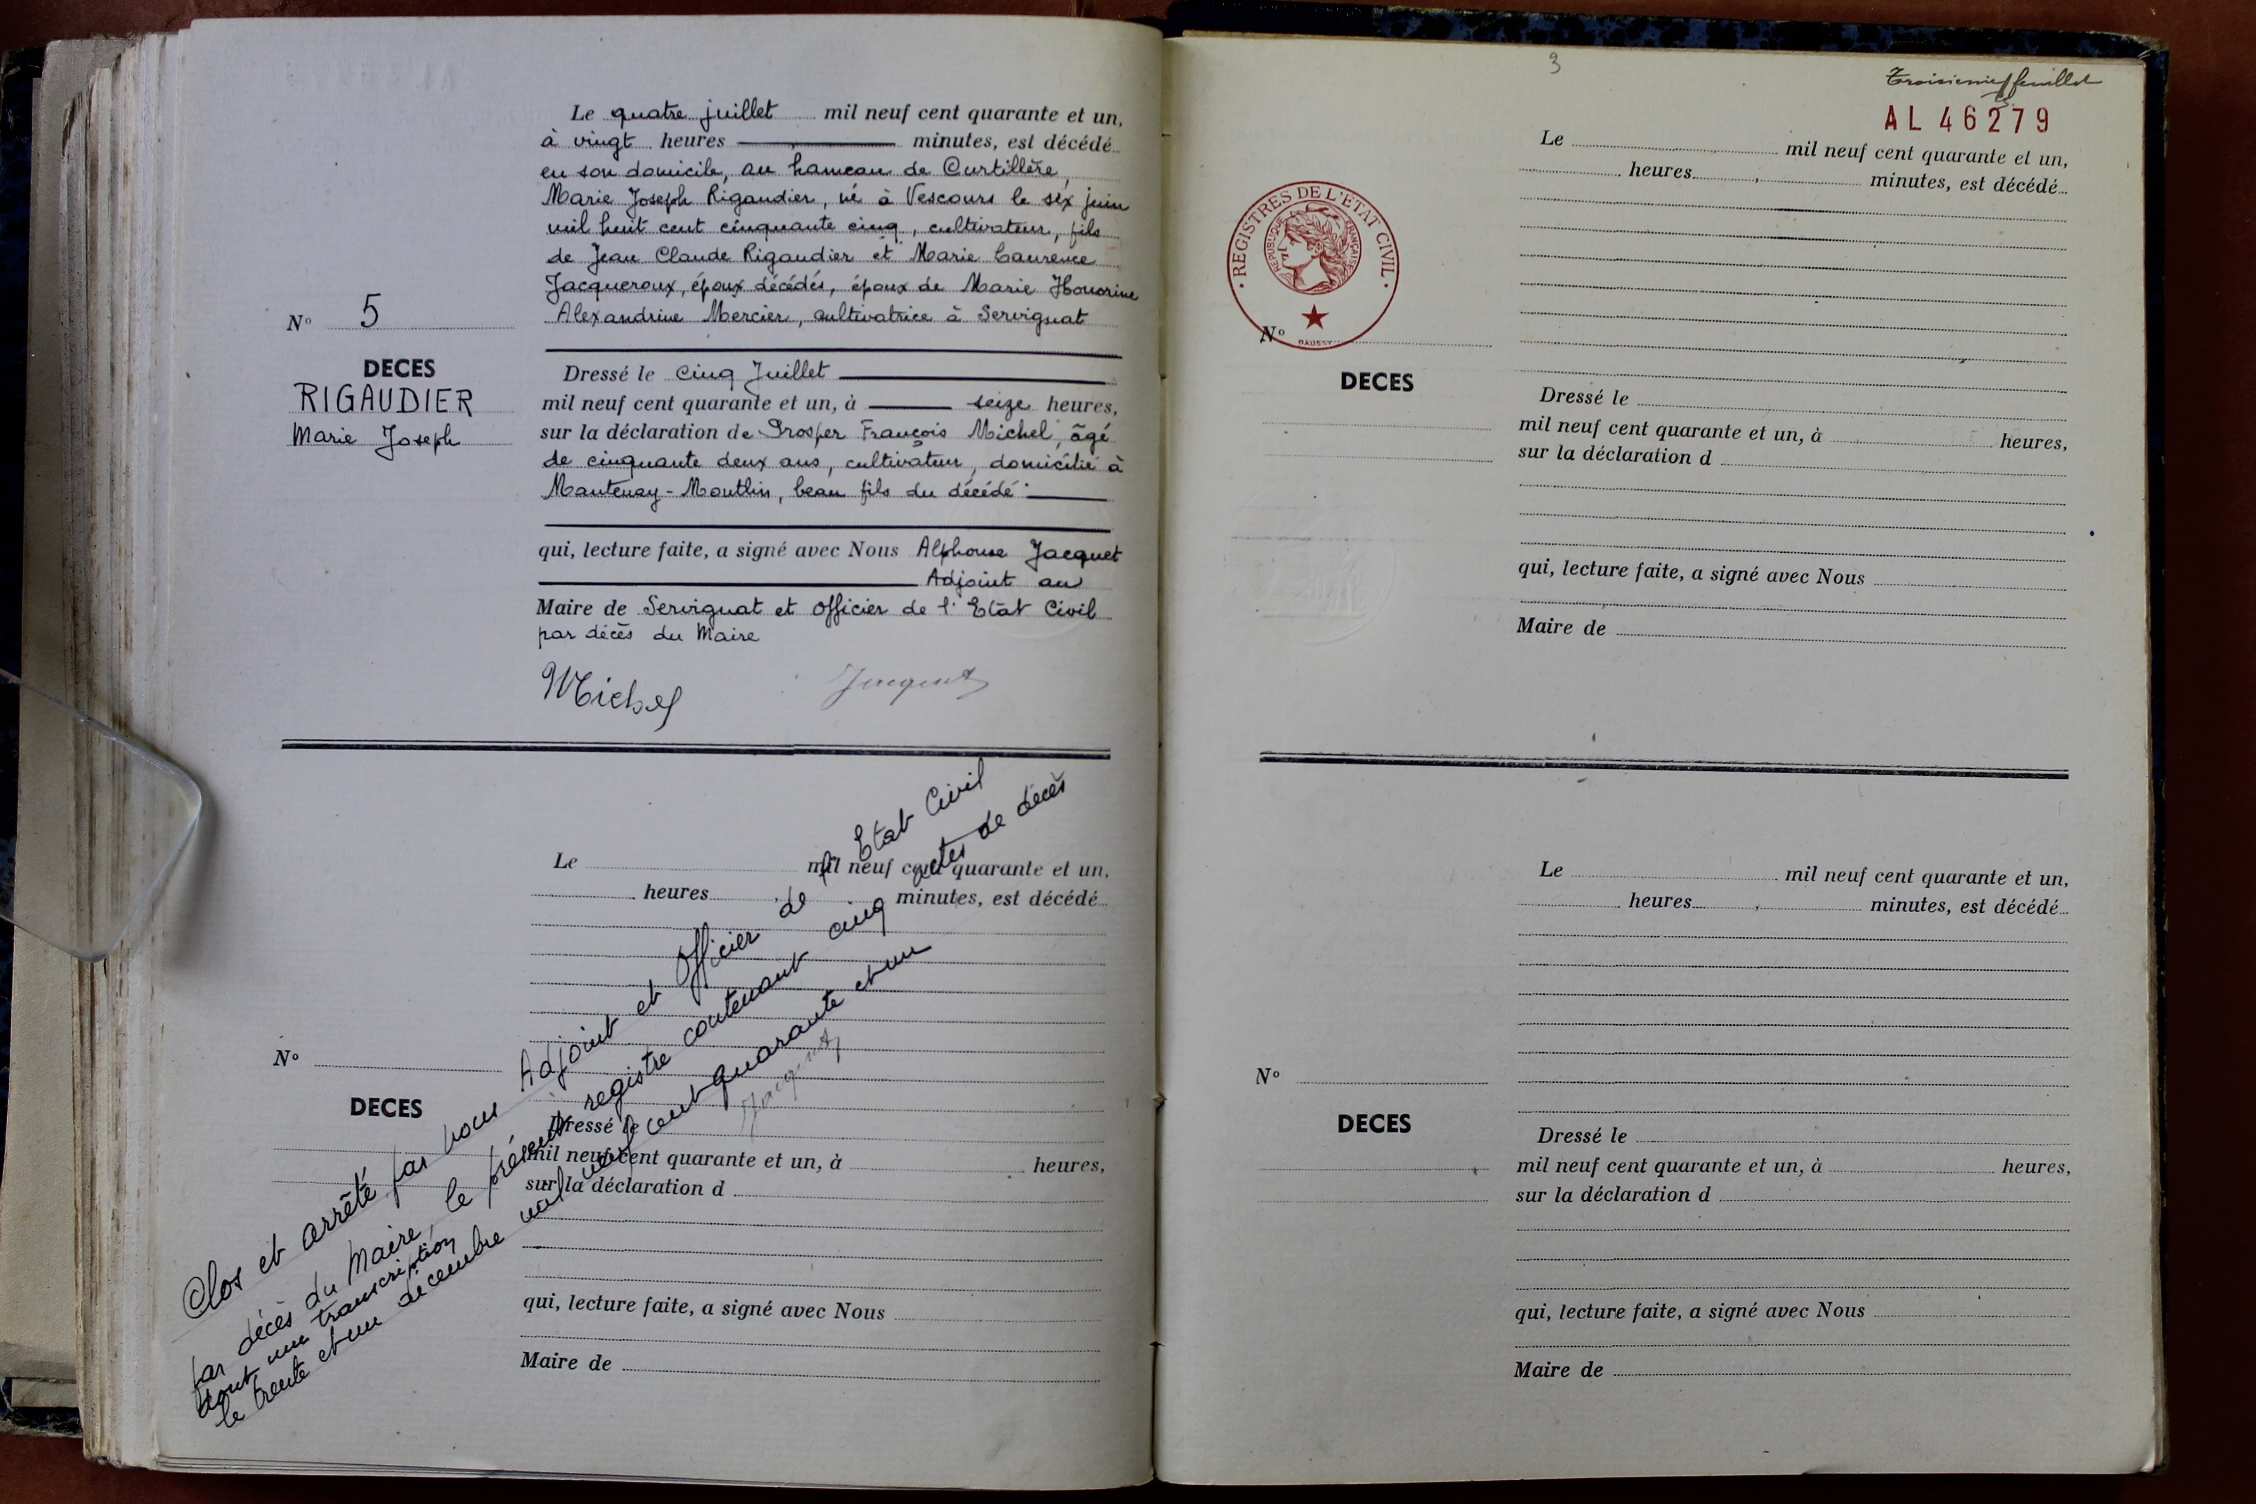 Le quatre juillet mil neuf cent quarante et un,
à vingt heures minutes, est décédé
en son domicile, au hameau de Curtillère,
Marie Joseph Rigaudier, né à Vescours le six juin
mil huit cent cinquante cinq, cultivateur, fils
de Jean Claude Rigaudier et Marie Laurence
Jacqueroux, époux décédés, époux de Marie Honorine
Alexandrine Mercier, cultivatrice à Servignat
N° 5
DECES
RIGAUDIER
Marie Joseph
Dressé le cinq Juillet
mil neuf cent quarante et un, à seize heures,
sur la déclaration de Prosper François Michel, âgé
de cinquante deux ans, cultivateur, domicilié à
Mantenay-Montlin, beau fils du décédé
qui, lecture faite, a signé avec Nous Alphonse Jacquet
Adjoint au
Maire de Servignat et Officier de l'Etat Civil
par décès du Maire
Michel
Jacquet
Le mil neuf cent quarante et un,
heures minutes, est décédé
N°
DECES
Dressé le
mil neuf cent quarante et un, à heures,
sur la déclaration d
qui, lecture faite, a signé avec Nous
Maire de
Clos et arrêté par nous Adjoint et Officier de l'Etat Civil
par décès du Maire, le présent registre contenant cinq actes de décès
dont une transcription
le trente et un décembre mil neuf cent quarante et un
Jacquet
3
Troisième feuillet
AL 46279
REGISTRES DE L'ETAT CIVIL
REPUBLIQUE FRANÇAISE
Le mil neuf cent quarante et un,
heures minutes, est décédé
N°
DECES
Dressé le
mil neuf cent quarante et un, à heures,
sur la déclaration d
qui, lecture faite, a signé avec Nous
Maire de
Le mil neuf cent quarante et un,
heures minutes, est décédé
N°
DECES
Dressé le
mil neuf cent quarante et un, à heures,
sur la déclaration d
qui, lecture faite, a signé avec Nous
Maire de